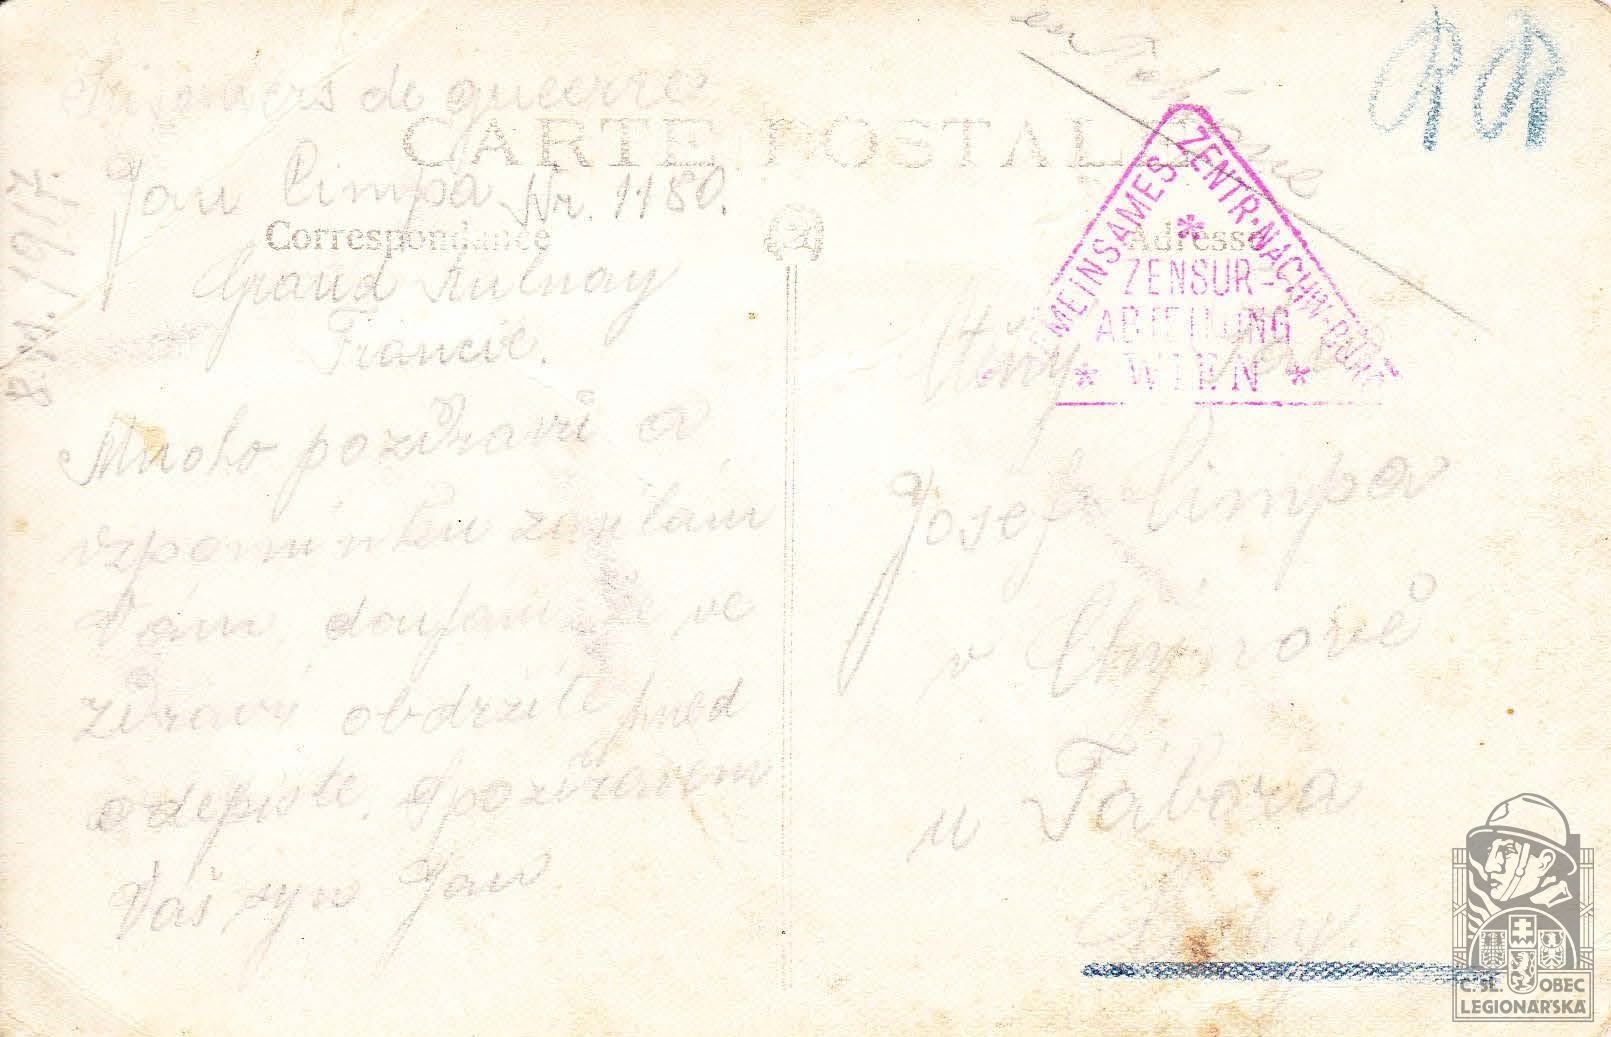 Prisonniers de gueerre
CARTE POSTALE
Jan Cimpa Nr. 1180.
Correspondance
Grand Aulnay
Francie.
1917.
Mnoho pozdravů a
vzpomínku zasílám
Vám, doufám že ve
zdraví obdržíte hned
odepište. S pozdravem
Váš syn Jan
en
Adresse
GEMEINSAMES ZENTR. NACHW. BÜRO
ZENSUR-
ABTEILUNG
* WIEN *
Josef Cimpa
v Chýnově
u Tábora
Č. SL. OBEC
LEGIONÁŘSKÁ